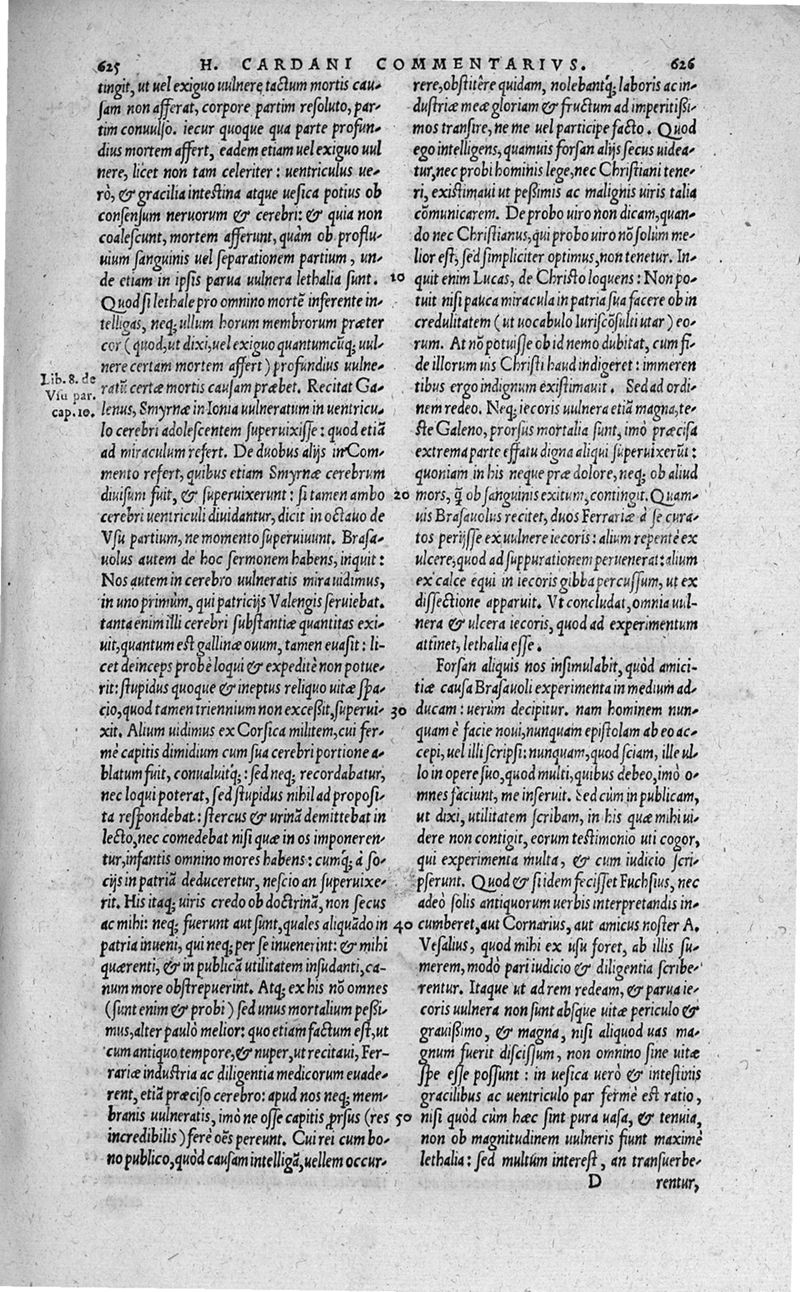 625 H. CARDANI COMMENTARIVS. 626
tingit, ut uel exiguo uulnere tactum mortis cau-
sam non afferat, corpore partim resoluto, par-
tim conuulso. iecur quoque qua parte profun-
dius mortem affert, eadem etiam uel exiguo uul
nere, licet non tam celeriter: uentriculus ue-
rò, & gracilia intestina atque uesica potius ob
consensum neruorum & cerebri: & quia non
coalescunt, mortem afferunt, quàm ob proflu-
uium sanguinis uel separationem partium, un-
de etiam in ipsis parua uulnera lethalia sunt.
Quod si lethale pro omnino mortē inferente in-
telligas, neq; ullum horum membrorum præter
cor (quod, ut dixi, uel exiguo quantumcūq; uul-
nere certam mortem affert) profundius uulne-
ratū certæ mortis causam præbet. Recitat Ga-
lenus, Smyrnæ in Ionia uulneratum in uentricu-
lo cerebri adolescentem superuixisse: quod etiā
ad miraculum refert. De duobus alijs in Com-
mento refert, quibus etiam Smyrnæ cerebrum
diuisum fuit, & superuixerunt: si tamen ambo
cerebri uentriculi diuidantur, dicit in octauo de
Vsu partium, ne momento superuiuunt. Brasa-
uolus autem de hoc sermonem habens, inquit:
Nos autem in cerebro uulneratis mira uidimus,
in uno primùm, qui patricijs Valengis seruiebat.
tanta enim illi cerebri substantiæ quantitas exi-
uit, quantum est gallinæ ouum, tamen euasit: li-
cet deinceps probè loqui & expeditè non potue-
rit: stupidus quoque & ineptus reliquo uitæ spa-
cio, quod tamen triennium non excessit, superui-
xit. Alium uidimus ex Corsica militem, cui fer-
mè capitis dimidium cum sua cerebri portione a-
blatum fuit, conualuitq;: sed neq; recordabatur,
nec loqui poterat, sed stupidus nihil ad proposi-
ta respondebat: stercus & urinā demittebat in
lecto, nec comedebat nisi quæ in os imponeren-
tur, infantis omnino mores habens: cumq; à so-
cijs in patriā deduceretur, nescio an superuixe-
rit. His itaq; uiris credo ob doctrinā, non secus
ac mihi: neq; fuerunt aut sunt, quales aliquādo in
patria inueni, qui neq; per se inuenerint: & mihi
quærenti, & in publicā utilitatem insudanti, ca-
num more obstrepuerint. Atq; ex his nō omnes
(sunt enim & probi) sed unus mortalium pessi-
mus, alter paulò melior: quo etiam factum est, ut
cum antiquo tempore, & nuper, ut recitaui, Fer-
rariæ industria ac diligentia medicorum euade-
rent, etiā præciso cerebro: apud nos neq; mem-
branis uulneratis, imò ne osse capitis prsus (res
incredibilis) ferè oēs pereunt. Cui rei cum bo-
no publico, quòd causam intelligā, uellem occur-
Lib. 8. de
Vsu par.
cap. 10.
10
20
30
40
50
rere, obstitêre quidam, nolebantq; laboris ac in-
dustriæ meæ gloriam & fructum ad imperitissi-
mos transire, ne me uel participe facto. Quod
ego intelligens, quamuis forsan alijs secus uidea-
tur, nec probi hominis lege, nec Christiani tene-
ri, existimaui ut pessimis ac malignis uiris talia
cōmunicarem. De probo uiro non dicam, quan-
do nec Christianus, qui probo uiro nō solùm me-
lior est, sed simpliciter optimus, non tenetur. In-
quit enim Lucas, de Christo loquens: Non po-
tuit nisi pauca miracula in patria sua facere ob in
credulitatem (ut uocabulo Iuriscōsulti utar) eo-
rum. At nō potuisse ob id nemo dubitat, cum fi-
de illorum uis Christi haud indigeret: immeren
tibus ergo indignum existimauit. Sed ad ordi-
nem redeo. Neq; iecoris uulnera etiā magna, te-
ste Galeno, prorsus mortalia sunt, imò præcisa
extrema parte effatu digna aliqui superuixerūt:
quoniam in his neque præ dolore, neq; ob aliud
mors, q̄ ob sanguinis exitum, contingit. Quam-
uis Brasauolus recitet, duos Ferrariæ à se cura-
tos perijsse ex uulnere iecoris: alium repentè ex
ulcere, quod ad suppurationem peruenerat: alium
ex calce equi in iecoris gibba percussum, ut ex
dissectione apparuit. Vt concludat, omnia uul-
nera & ulcera iecoris, quod ad experimentum
attinet, lethalia esse.
Forsan aliquis nos insimulabit, quòd amici-
tiæ causa Brasauoli experimenta in medium ad-
ducam: uerùm decipitur. nam hominem nun-
quam è facie noui, nunquam epistolam ab eo ac-
cepi, uel illi scripsi: nunquam, quod sciam, ille ul-
lo in opere suo, quod multi, quibus debeo, imò o-
mnes faciunt, me inseruit. Sed cùm in publicam,
ut dixi, utilitatem scribam, in his quæ mihi ui-
dere non contigit, eorum testimonio uti cogor,
qui experimenta multa, & cum iudicio scri-
pserunt. Quod & si idem fecisset Fuchsius, nec
adeò solis antiquorum uerbis interpretandis in-
cumberet, aut Cornarius, aut amicus noster A.
Vesalius, quod mihi ex usu foret, ab illis su-
merem, modò pari iudicio & diligentia scribe-
rentur. Itaque ut ad rem redeam, & parua ie-
coris uulnera non sunt absque uitæ periculo &
grauissimo, & magna, nisi aliquod uas ma-
gnum fuerit discissum, non omnino sine uitæ
spe esse possunt: in uesica uerò & intestinis
gracilibus ac uentriculo par fermè est ratio,
nisi quòd cùm hæc sint pura uasa, & tenuia,
non ob magnitudinem uulneris fiunt maximè
lethalia: sed multùm interest, an transuerbe-
D rentur,